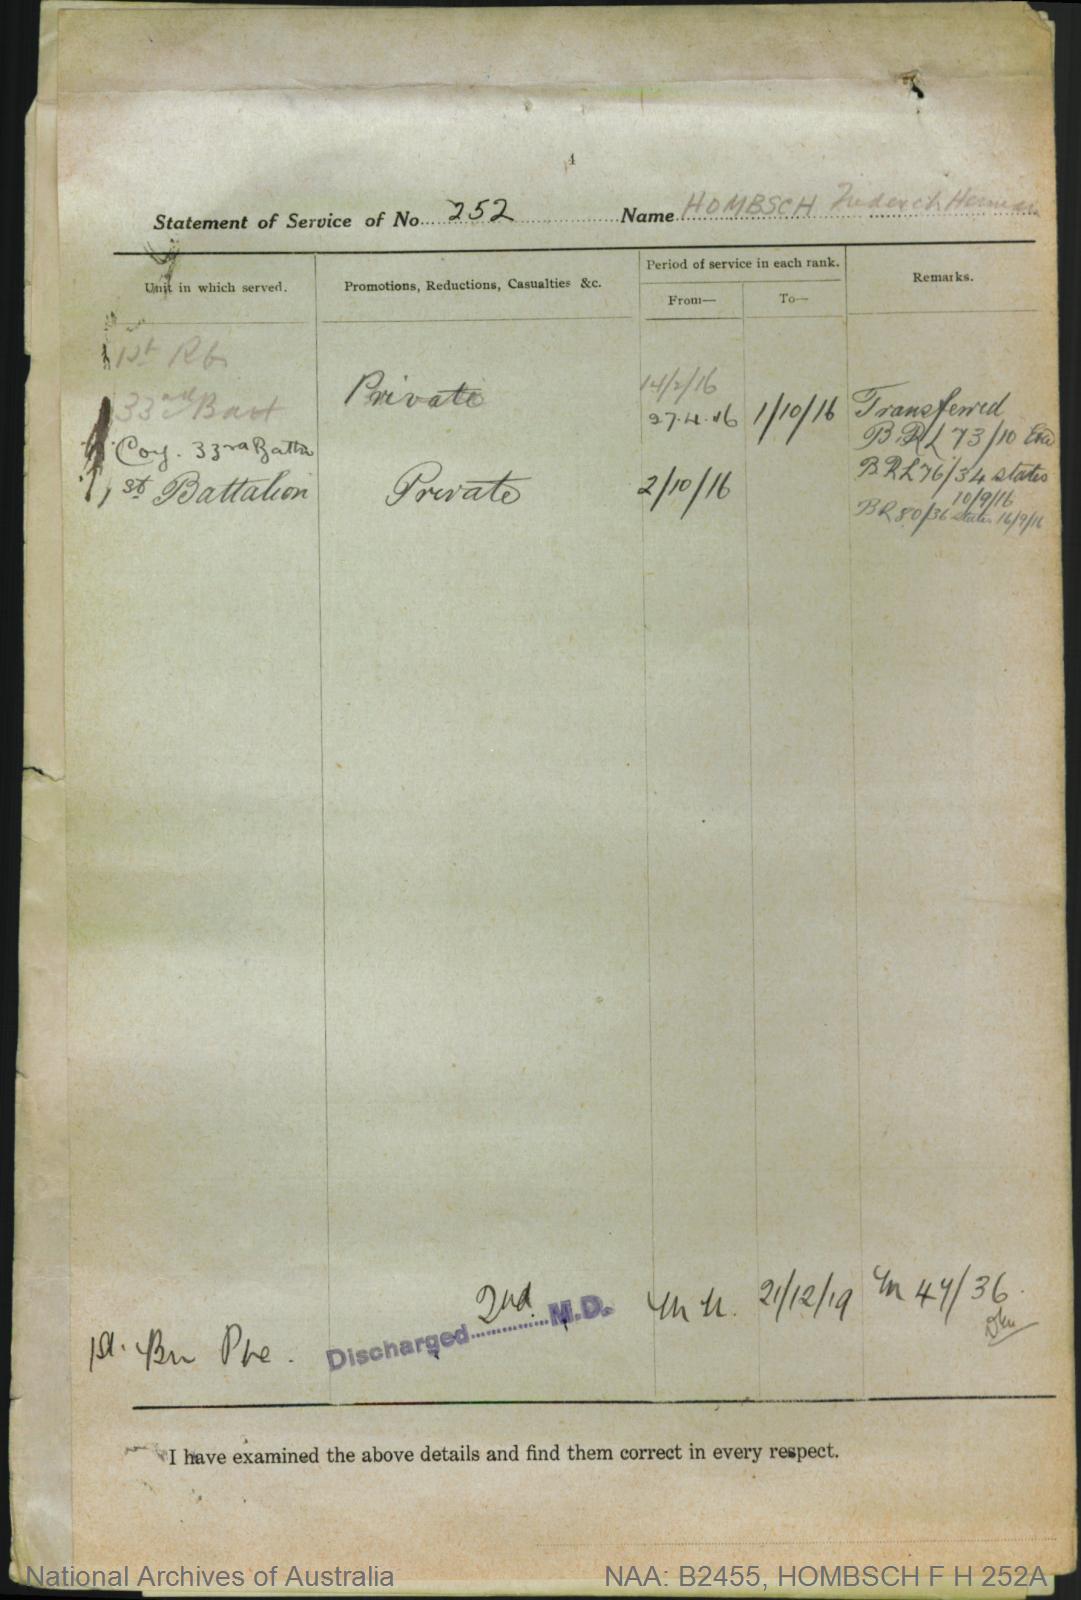 4
Statement of Service of No. 252 Name HOMBSCH Frederick Herman
Unit in which served. Promotions, Reductions, Casualties &c. Period of service in each rank. Remarks.
From— To—
1st
33rd Batt Private 14/2/16
27.4.16 1/10/16 Transferred
Coy. 33rd Battn BRL 73/10
1st Battalion Private 2/10/16 BRL 76/34 states
10/9/16
BR 80/36 states 16/9/16
1st. Bn Pte. Discharged 2nd M.D. 21/12/19 47/36
I have examined the above details and find them correct in every respect.
National Archives of Australia NAA: B2455, HOMBSCH F H 252A